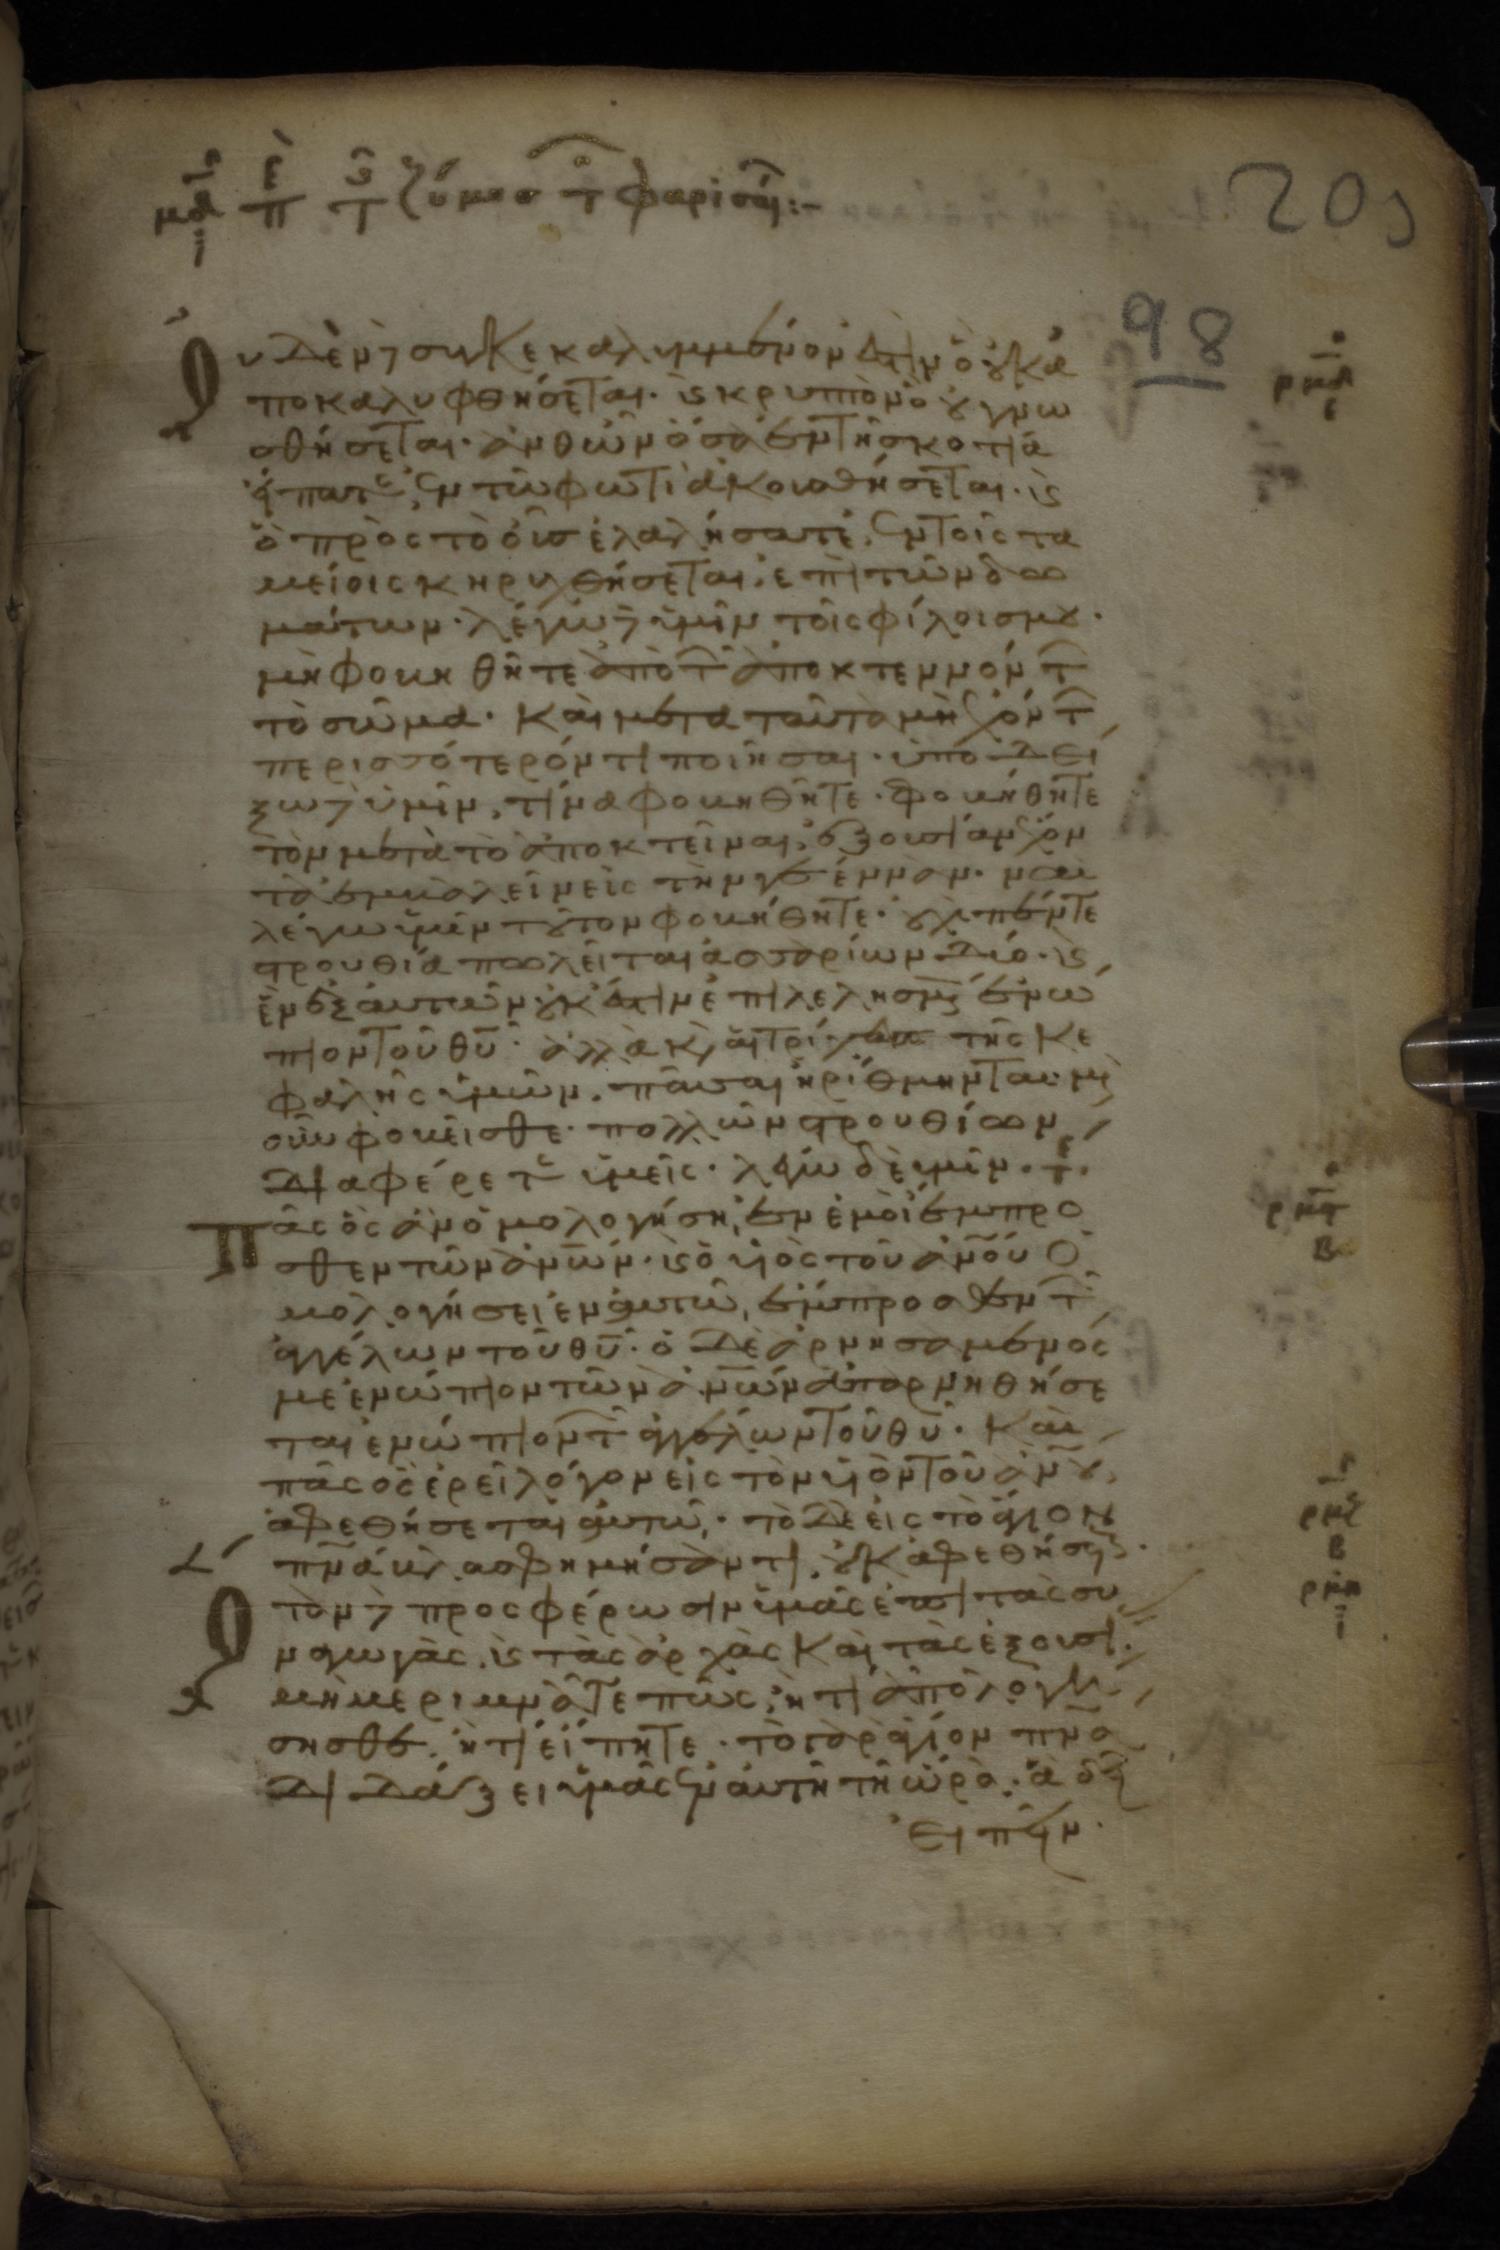 μα π τ ζύμησ τ φαρισαί:-
209
98
υδὲν δὲ συγκεκαλυμμένον ἐστὶν ὃ οὐκ ἀ
ποκαλυφθήσεται· κ κρυπτὸν ὃ οὐ γνω
σθήσεται· ἀνθῶν ὅσα ἐν τῆ σκοτία
εἴπατε, ἐν τῶ φωτὶ ἀκουσθήσεται· κ
ὃ πρὸς τὸ οὖσ ἐλαλήσατε, ἐν τοῖς τα
μείοις κηρυχθήσεται ἐπὶ τῶν δω
μάτων· λέγω δὲ ὑμῖν τοῖς φίλοισ μου·
μὴ φοβηθῆτε ἀπὸ τ ἀποκτεννόντ
τὸ σῶμα· καὶ μετὰ ταῦτα μὴ ἐχόντ
περισσότερόν τι ποιῆσαι· ὑποδεί
ξω δὲ ὑμῖν, τίνα φοβηθῆτε· φοβήθητε
τὸν μετὰ τὸ ἀποκτεῖναι, ἐξουσίαν ἔχον
τα ἐμβαλεῖν εἰς τὴν γέενναν· ναὶ
λέγω ὑμῖν τοῦτον φοβήθητε· οὐχὶ πέντε
στρουθία πωλεῖται ἀσσαρίων δύο· κ
ἓν ἐξ αὐτῶν οὐκ ἔστιν ἐπιλελησμ ἐνώ
πιον τοῦ θυ· ἀλλὰ κ αἱ τρίχες τῆς κε
φαλῆς ὑμῶν, πᾶσαι ἠρίθμηνται· μὴ
οὖν φοβεῖσθε· πολλῶν στρουθίων
διαφέρετε ὑμεῖς· λέγω δὲ ὑμῖν· τε·
Πᾶς ὃς ἂν ὁμολογήση ἐν ἐμοὶ ἔμπρο
σθεν τῶν ἀνων· κ ὁ υἱὸς τοῦ ἀνου ὁ
μολογήσει ἐν αὐτῶ, ἔμπροσθεν τ
ἀγγέλων τοῦ θυ· ὁ δὲ ἀρνησάμενός
με ἐνώπιον τῶν ἀνων ἀπαρνηθήσε
ται ἐνώπιον τ ἀγγέλων τοῦ θυ· καὶ
πᾶς ὃς ἐρεῖ λόγον εἰς τὸν υἱὸν τοῦ ἀνου,
ἀφεθήσεται αὐτῶ· τὸ δὲ εἰς τὸ ἅγιον
πνα βλασφημήσαντι, οὐκ ἀφεθήσετ·
Ὅταν δὲ προσφέρωσιν ὑμᾶς ἐπὶ τὰς συ
ναγωγὰς, κ τὰς ἀρχὰς καὶ τὰς ἐξουσί·
μὴ μεριμνᾶτε πῶς, ἢ τί ἀπολογή
σησθε, ἢ τί εἴπητε· τὸ γὰρ ἅγιον πνα
διδάξει ὑμᾶς ἐν αὐτῆ τῆ ὥρα, ἃ δεῖ
Εἰπεῖν·